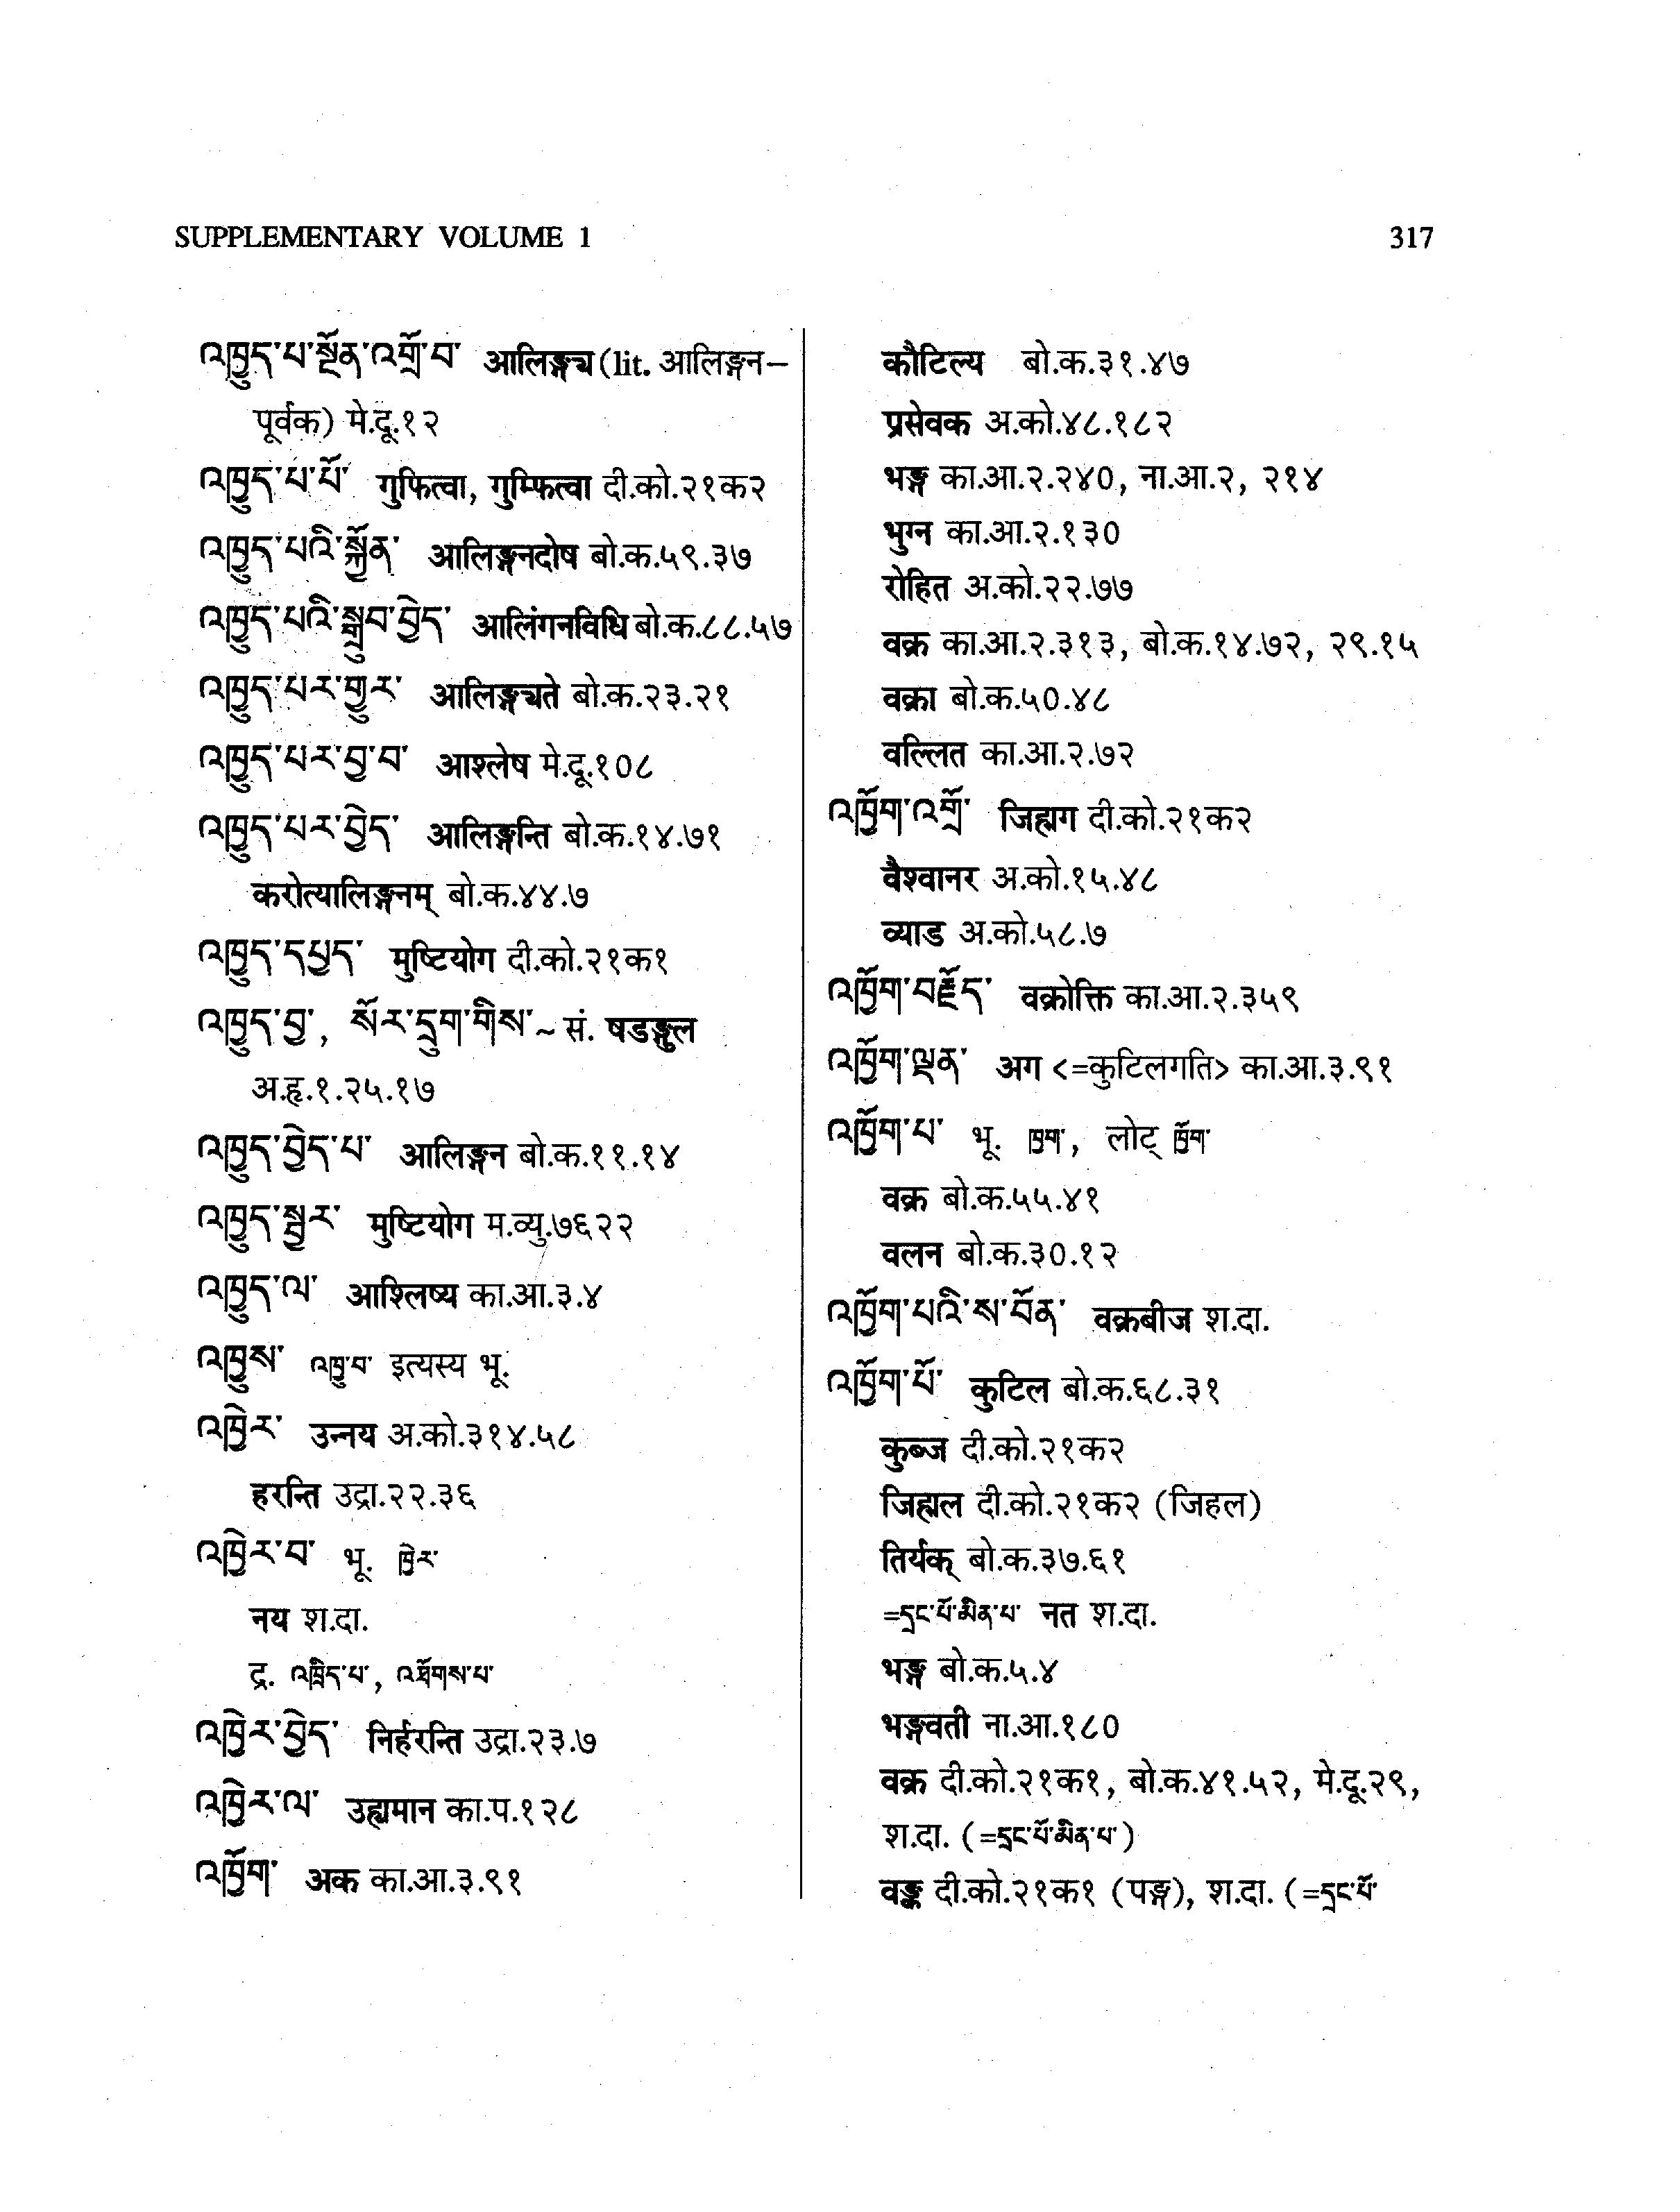 SUPPLEMENTARY VOLUME 1
317
འཁྱུད་པ་སྔོན་འགྲོ་བ་ आलिङ्ग्य (lit. आलिङ्गन–
पूर्वक) मे.दू.१२
འཁྱུད་པ་པོ་ गुफित्वा, गुम्फित्वा दी.को.२१क२
འཁྱུད་པའི་སྐྱོན་ आलिङ्गनदोष बो.क.५९.३७
འཁྱུད་པའི་སྒྲུབ་བྱེད་ आलिंगनविधि बो.क.८८.५७
འཁྱུད་པར་གྱུར་ आलिङ्ग्यते बो.क.२३.२१
འཁྱུད་པར་བྱ་བ་ आश्लेष मे.दू.१०८
འཁྱུད་པར་བྱེད་ आलिङ्गन्ति बो.क.१४.७१
करोत्यालिङ्गनम् बो.क.४४.७
འཁྱུད་དཔྱད་ मुष्टियोग दी.को.२१क१
འཁྱུད་བྱ་, སོར་དྲུག་གིས་~ सं. षडङ्गुल
अ.हृ.१.२५.१७
འཁྱུད་བྱེད་པ་ आलिङ्गन बो.क.११.१४
འཁྱུད་སྦྱར་ मुष्टियोग म.व्यु.७६२२
འཁྱུད་ལ་ आश्लिष्य का.आ.३.४
འཁྱུས་ འཁྱུ་བ་ इत्यस्य भू.
འཁྱེར་ उन्नय अ.को.३१४.५८
हरन्ति उद्रा.२२.३६
འཁྱེར་བ་ भू. ཁྱེར་
नय श.दा.
द्र. འཁྲིད་པ་, འཐོགས་པ་
འཁྱེར་བྱེད་ निर्हरन्ति उद्रा.२३.७
འཁྱེར་ལ་ उह्यमान का.प.१२८
འཁྱོག་ अक का.आ.३.९१
कौटिल्य बो.क.३१.४७
प्रसेवक अ.को.४८.१८२
भङ्ग का.आ.२.२४०, ना.आ.२, २१४
भुग्न का.आ.२.१३०
रोहित अ.को.२२.७७
वक्र का.आ.२.३१३, बो.क.१४.७२, २९.१५
वक्रा बो.क.५०.४८
वल्लित का.आ.२.७२
འཁྱོག་འགྲོ་ जिह्मग दी.को.२१क२
वैश्वानर अ.को.१५.४८
व्याड अ.को.५८.७
འཁྱོག་བརྗོད་ वक्रोक्ति का.आ.२.३५९
འཁྱོག་ལྡན་ अग <=कुटिलगति> का.आ.३.९१
འཁྱོག་པ་ भू. ཁྱག་, लोट् ཁྱོག་
वक्र बो.क.५५.४१
वलन बो.क.३०.१२
འཁྱོག་པའི་ས་བོན་ वक्रबीज श.दा.
འཁྱོག་པོ་ कुटिल बो.क.६८.३१
कुब्ज दी.को.२१क२
जिह्मल दी.को.२१क२ (जिहल)
तिर्यक् बो.क.३७.६१
=དྲང་པོ་མིན་པ་ नत श.दा.
भङ्ग बो.क.५.४
भङ्गवती ना.आ.१८०
वक्र दी.को.२१क१, बो.क.४१.५२, मे.दू.२९,
श.दा. (=དྲང་པོ་མིན་པ་)
वङ्क दी.को.२१क१ (पङ्ग), श.दा. (=དྲང་པོ་